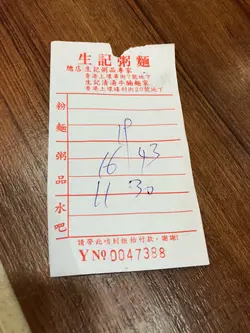 生記粥麵
總店 生記粥品專家
香港上環畢街7號地下
生記清湯牛腩麵家
香港上環禧利街20號地下
粉
麵
粥
品
水
吧
19
16 43
11 30
請帶此咭到柜枱付款，謝謝!
Y Nº 0047388